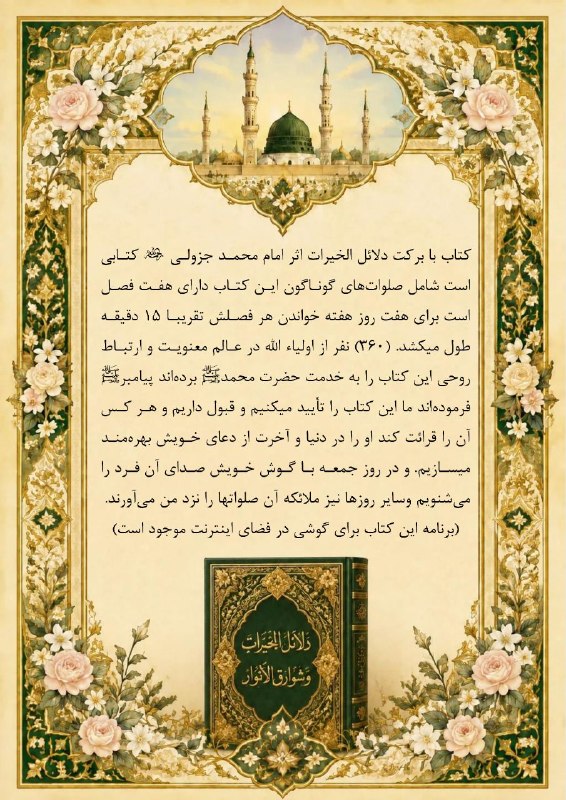 کتاب با برکت دلائل الخیرات اثر امام محمد جزولی کتابی
است شامل صلوات‌های گوناگون این کتاب دارای هفت فصل
است برای هفت روز هفته خواندن هر فصلش تقریبا ۱۵ دقیقه
طول میکشد. (۳۶۰) نفر از اولیاء الله در عالم معنویت و ارتباط
روحی این کتاب را به خدمت حضرت محمدﷺ برده‌اند پیامبرﷺ
فرموده‌اند ما این کتاب را تأیید میکنیم و قبول داریم و هر کس
آن را قرائت کند او را در دنیا و آخرت از دعای خویش بهره‌مند
میسازیم. و در روز جمعه با گوش خویش صدای آن فرد را
می‌شنویم وسایر روزها نیز ملائکه آن صلواتها را نزد من می‌آورند.
(برنامه این کتاب برای گوشی در فضای اینترنت موجود است)
دلائل الخيرات
وشوارق الأنوار